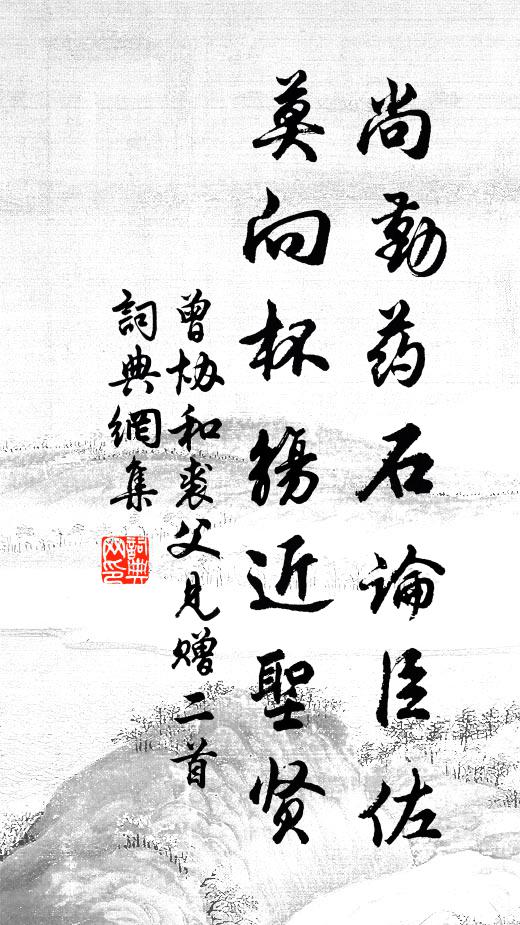 尚勤药石论臣佐
莫向杯觞近聖贤
曾协和裘父见赠二首
詞典網集
詞典网印